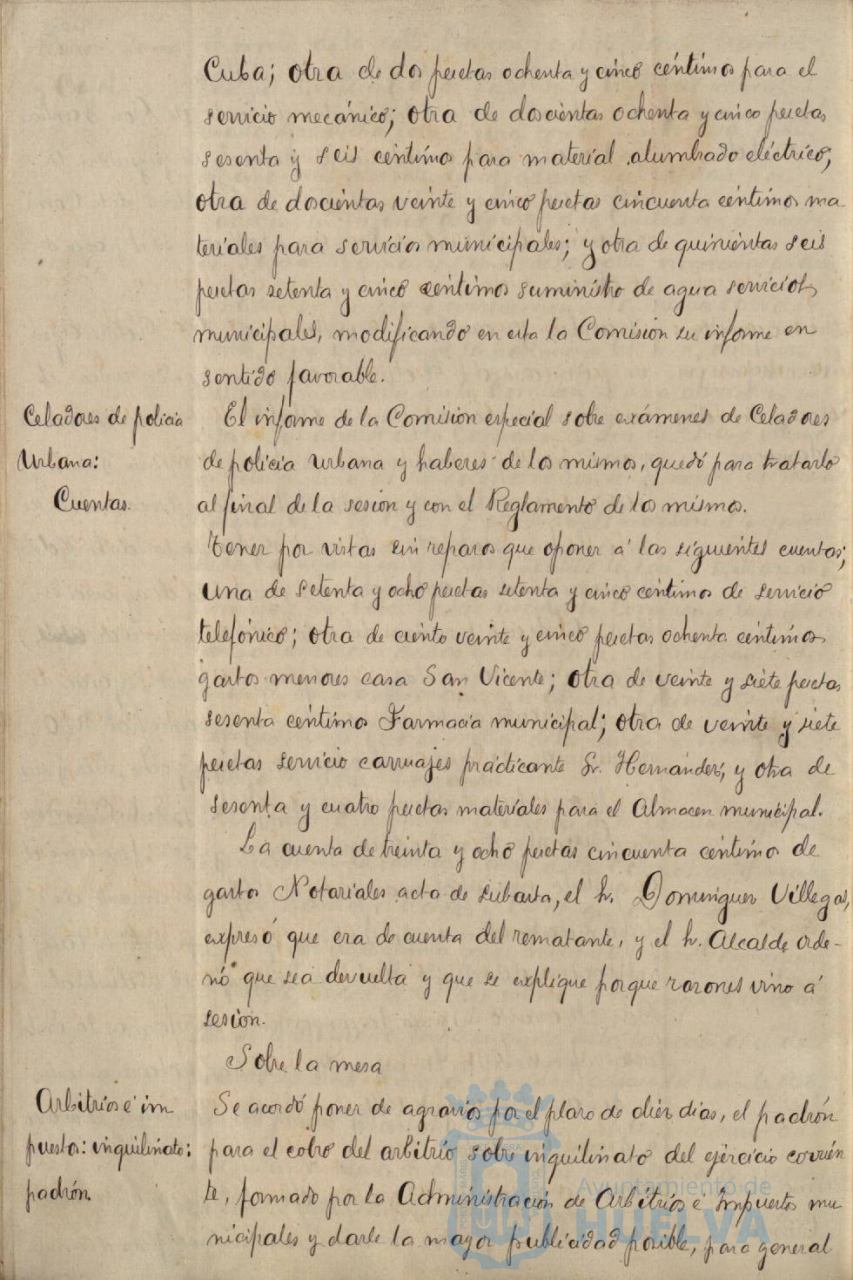 Cuba; otra de dos pesetas ochenta y cinco céntimos para el
servicio mecánico; otra de doscientas ochenta y cinco pesetas
sesenta y seis centimos para material alumbrado eléctrico;
otra de doscientas veinte y cinco pesetas cincuenta céntimos ma
teriales para servicios municipales; y otra de quinientas seis
pesetas setenta y cinco centimos suministro de agua servicios
municipales, modificando en esta la Comisión su informe en
sentido favorable.
Celadores de policia
Urbana:
Cuentas.
El informe de la Comisión especial sobre exámenes de Celadores
de policia urbana y haberes de los mismos, quedó para tratarlo
al final de la sesion y con el Reglamento de los mismos.
Tener por vistas sin reparos que oponer á las siguientes cuentas;
una de setenta y ocho pesetas setenta y cinco centimos de servicio
telefónico; otra de ciento veinte y cinco pesetas ochenta centimos
gastos menores casa San Vicente; otra de veinte y siete pesetas
sesenta céntimos Farmacia municipal; otra de veinte y siete
pesetas servicio carruajes practicante Sr. Hernandez, y otra de
sesenta y cuatro pesetas materiales para el Almacen municipal.
La cuenta de treinta y ocho pesetas cincuenta centimos de
gastos Notariales acta de subasta, el Sr. Dominguez Villegas,
expresó que era de cuenta del rematante, y el Sr. Alcalde orde-
nó que sea devuelta y que se explique porque razones vino á
sesion.
Sobre la mesa
Arbitrios é im
puestos: inquilinato:
padrón.
Se acordó poner de agravios por el plazo de diez dias, el padrón
para el cobro del arbitrio sobre inquilinato del ejercicio corrien
te, formado por la Administración de Arbitrios é Impuestos mu
nicipales y darle la mayor publicidad posible, para general
Ayuntamiento de
HUELVA